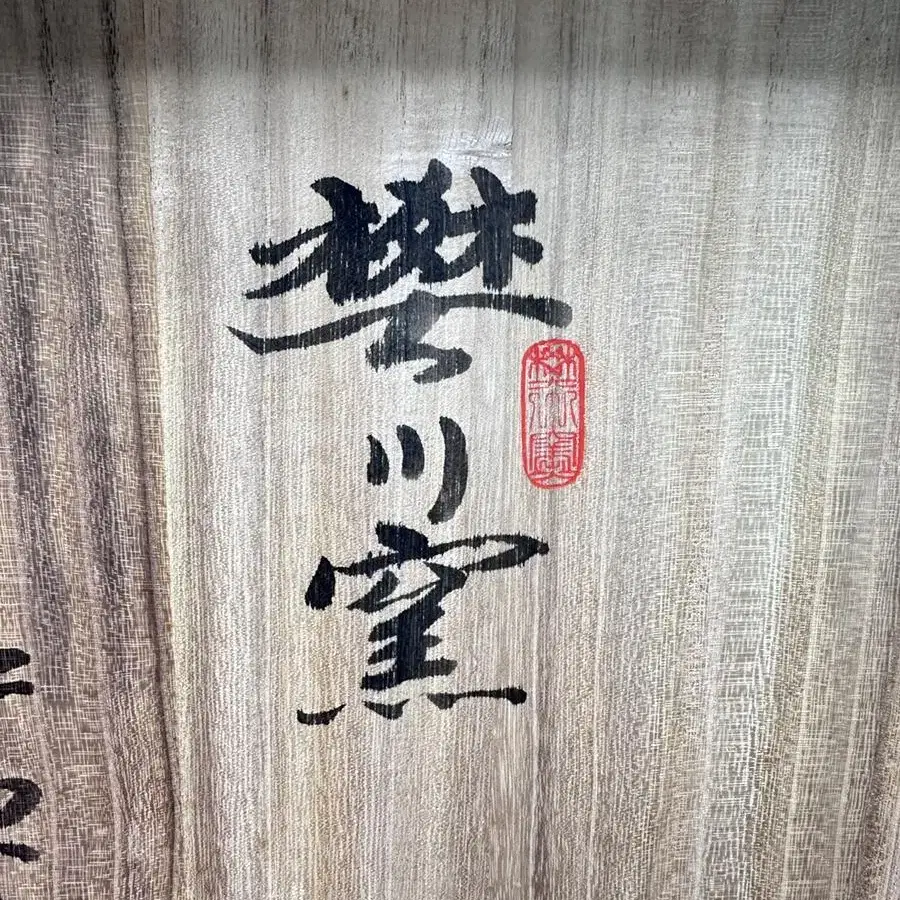 樊川窯